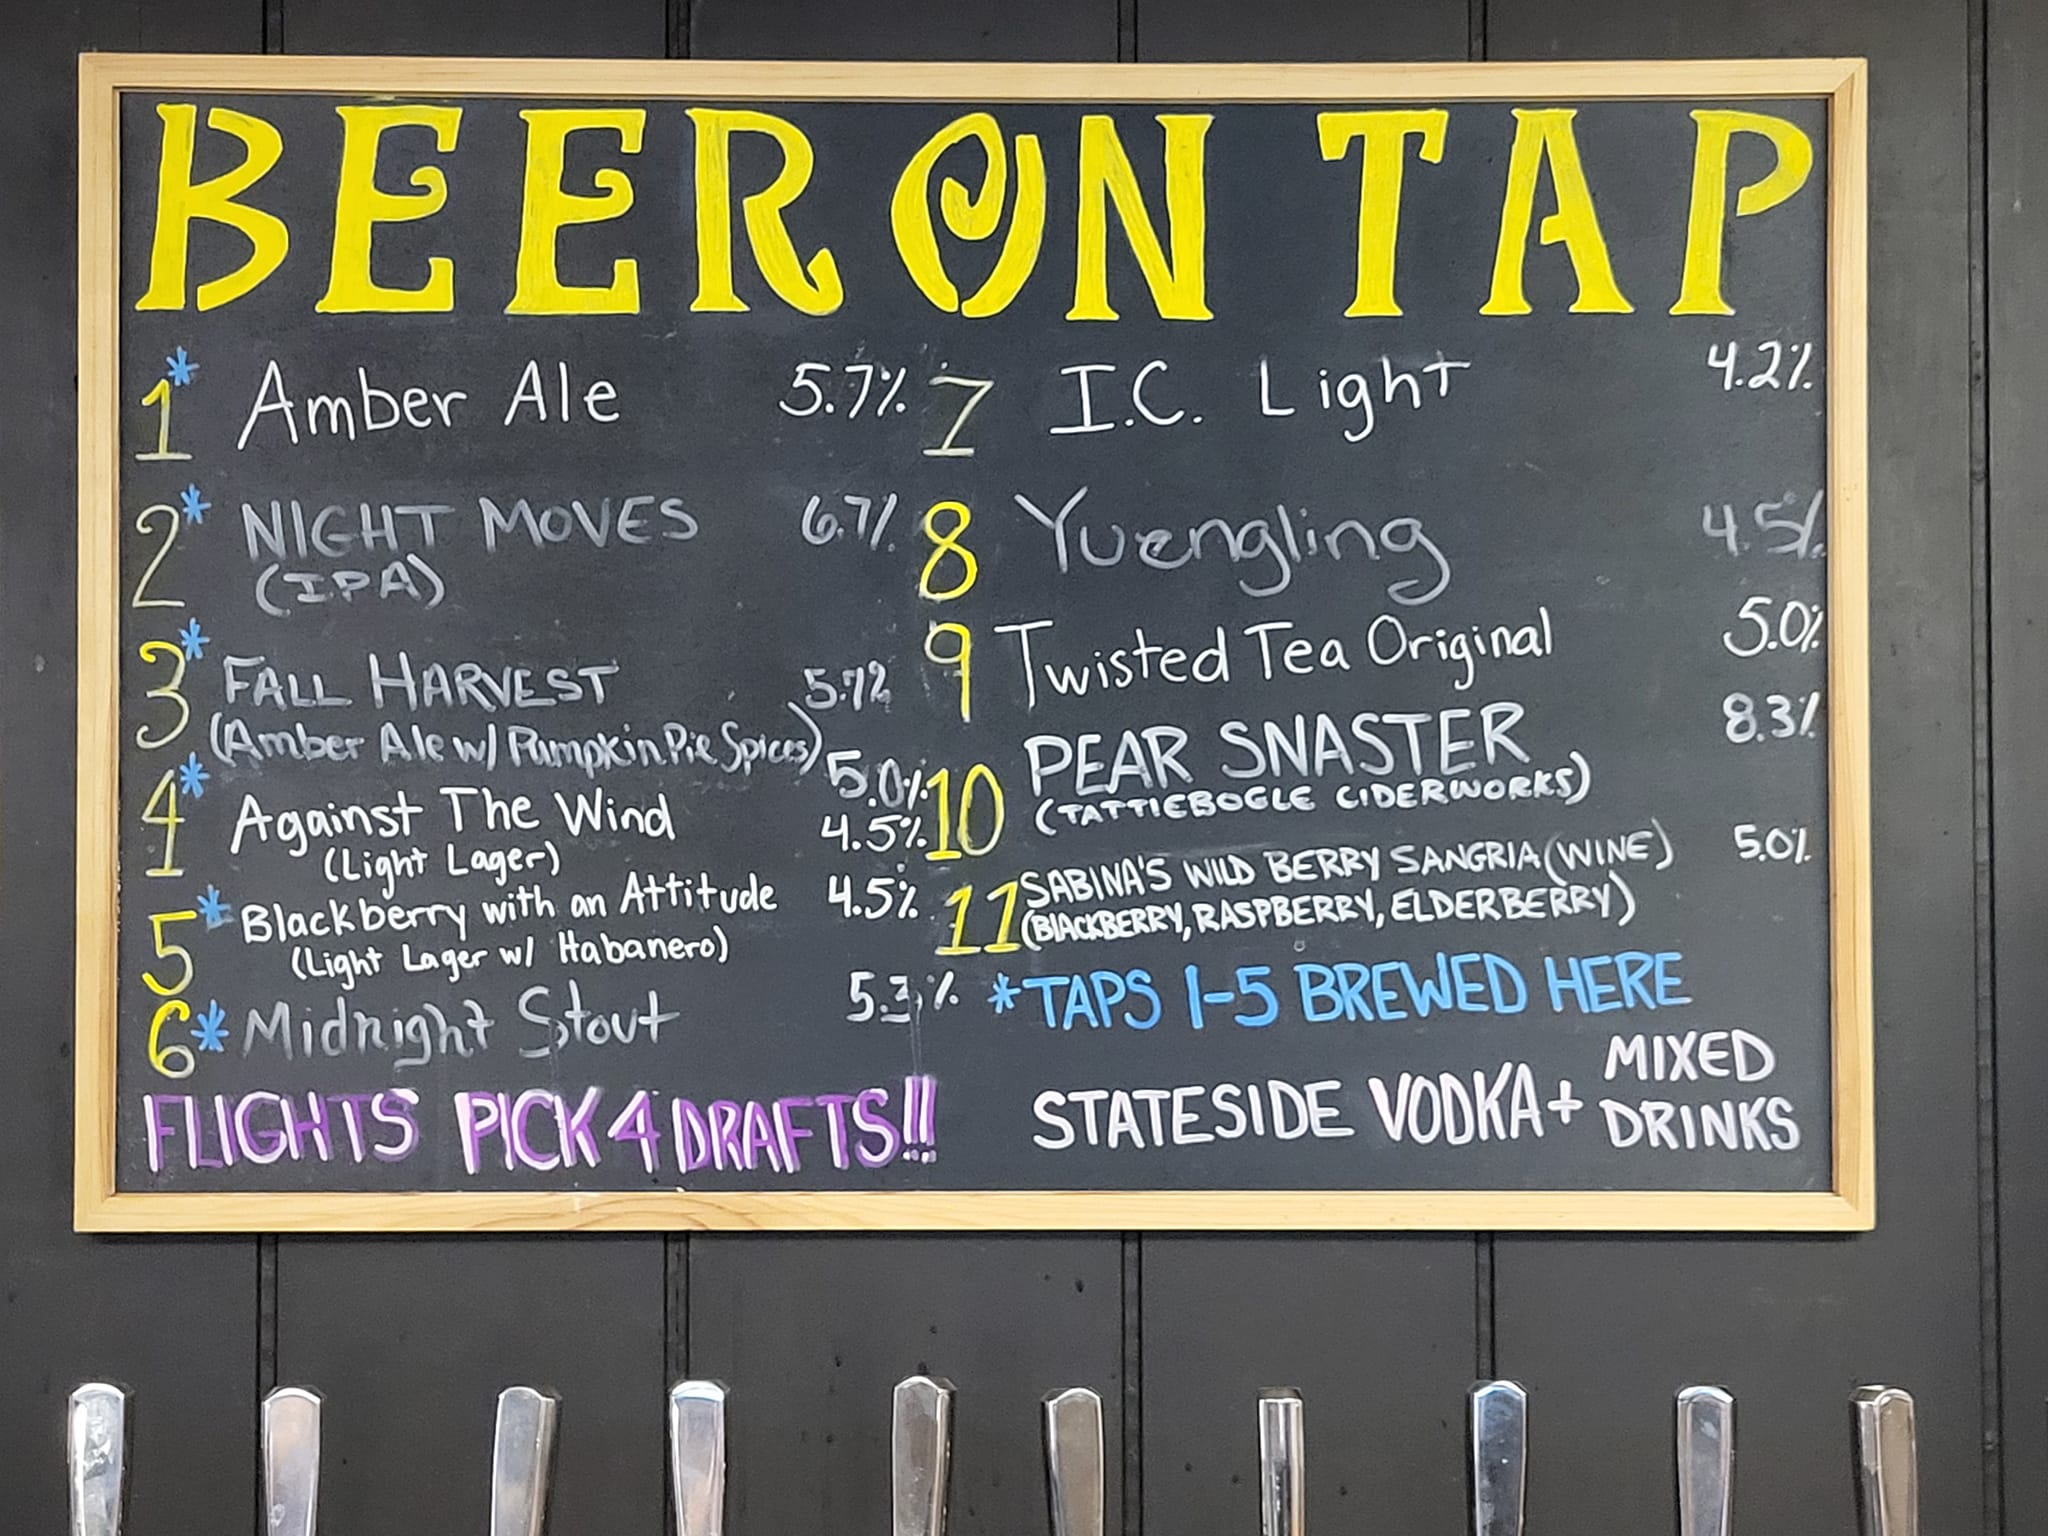 BEER ON TAP
1* Amber Ale 5.7%
2* NIGHT MOVES 6.7%
(IPA)
3* FALL HARVEST 5.7%
(Amber Ale w/ Pumpkin Pie Spices) 5.0%
4* Against The Wind 4.5%
(Light Lager)
5* Blackberry with an Attitude 4.5%
(Light Lager w/ Habanero)
6* Midnight Stout 5.3%
FLIGHTS PICK 4 DRAFTS!!!
7 I.C. Light 4.2%
8 Yuengling 4.5%
9 Twisted Tea Original 5.0%
10 PEAR SNASTER 8.3%
(TATTIEBOGLE CIDERWORKS)
11 SABINA'S WILD BERRY SANGRIA (WINE) 5.0%
(BLACKBERRY, RASPBERRY, ELDERBERRY)
*TAPS 1-5 BREWED HERE
STATESIDE VODKA + MIXED
DRINKS